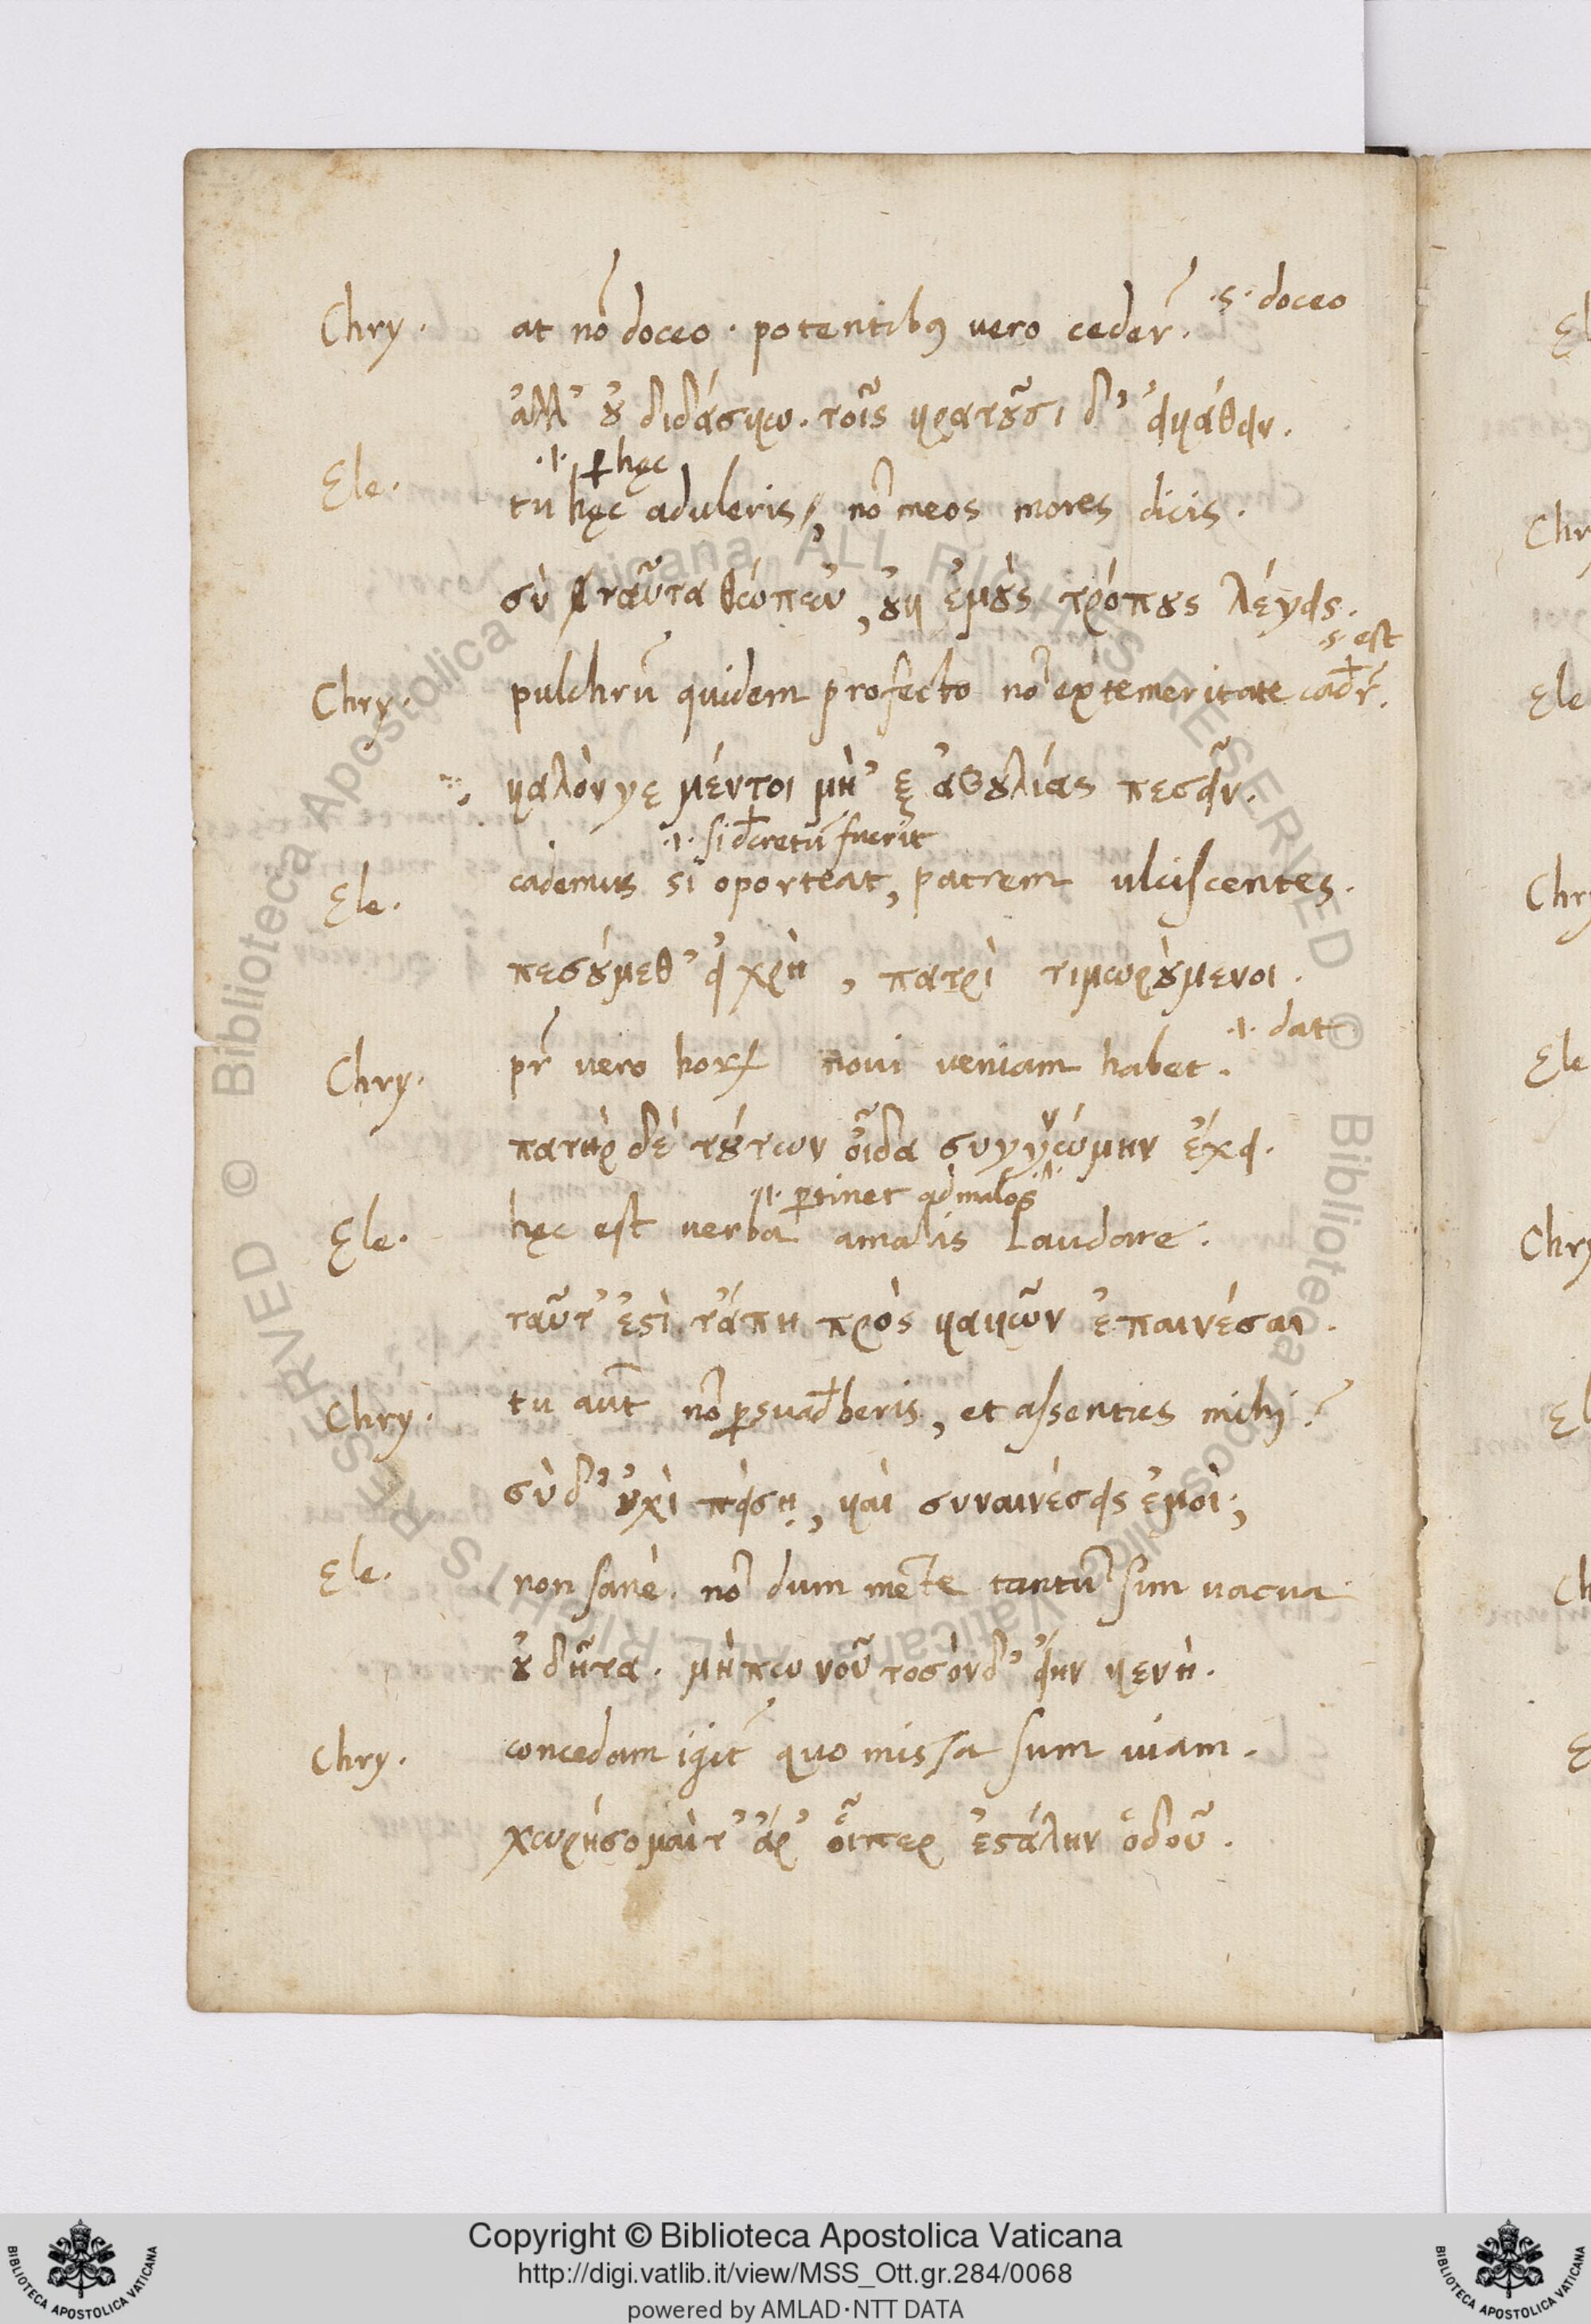 ·s· doceo
Chry. at nō doceo · potentibꝰ vero cedeȓ.
ἀλλ' ȣ̓ διδάσκω. τοῖς κρατȣ͂σι δ' εἰκάθειν.
·i· ꝑ hęc
Ele. tu hęc aduleris, nō meos mores dicis.
σὺ ταῦτα θώπευ, ȣ̓κ ἐμȣ̀ς τρόπȣς λέγεις.
·s· est
Chry. pulchrū quidem profecto nō ex temeritate cadeȓ.
καλόν γε μέντοι μὴ 'ξ ἀβȣλίας πεσεῖν.
·i· si dcretū fuerit
Ele. cademus si oporteat, patrem ulciscentes.
πεσȣ́μεθ' εἰ χρὴ, πατρὶ τιμωρȣ́μενοι.
·i· dat
Chry. pȓ vero horꝝ noui veniam habet.
πατὴρ δὲ τȣ́των οἶδα συγγνώμην ἔχει.
·i· ꝑtinet ad malos
Ele. hęc est verba a malis Laudare.
ταῦτ' ἐστὶ τἄπη πρὸς κακῶν ἐπαινέσαι.
Chry. tu aūt nō ꝑsuadberis, et assenties mihi?
σὺ δ' ȣ̓χὶ πείσῃ, καὶ συναινέσεις ἐμοὶ;
Ele. non sanè. nō dum mēte tantū sim uacua
ȣ̓ δῆτα. μήπω νοῦ τοσόνδ' εἴην κενὴ.
Chry. concedam igit̄ quo missa sum uiam.
χωρήσομαί τ' ἄρ' οἷπερ ἐστάλην ὁδοῦ.
Copyright © Biblioteca Apostolica Vaticana
http://digi.vatlib.it/view/MSS_Ott.gr.284/0068
powered by AMLAD·NTT DATA